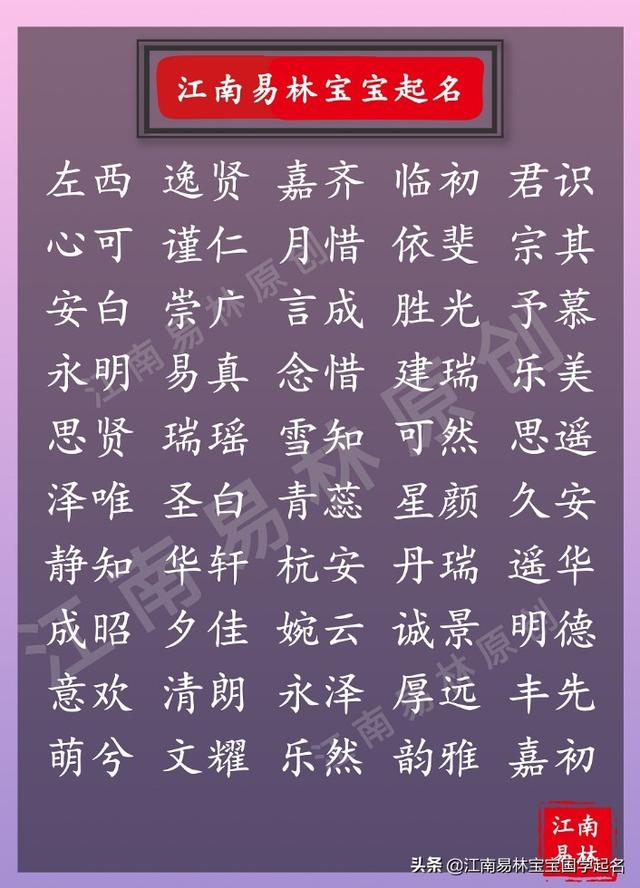 江南易林宝宝起名
左西 逸贤 嘉齐 临初 君识
心可 谨仁 月惜 依斐 宗其
安白 崇广 言成 胜光 予慕
永明 易真 念惜 建瑞 乐美
思贤 瑞瑶 雪知 可然 思遥
泽唯 圣白 青蕊 星颜 久安
静知 华轩 杭安 丹瑞 遥华
成昭 夕佳 婉云 诚景 明德
意欢 清朗 永泽 厚远 丰先
萌兮 文耀 乐然 韵雅 嘉初
江南易林原创
江南易林原创
江南易林原创
江南
易林
头条 @江南易林宝宝国学起名